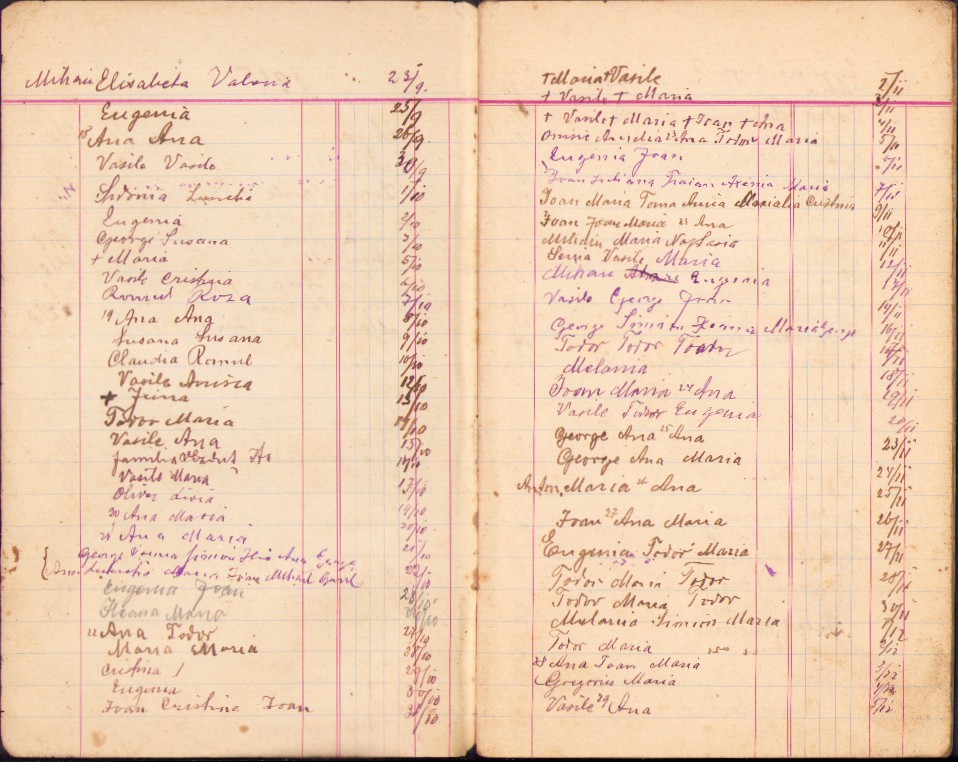 Mihaiu Elisabeta Valeria 23/9
Eugenia 25/9
18 Ana Ana 26/9
Vasile Vasile 30/9
Sidonia 1/10
Eugenia 2/10
George Susana 3/10
+ Maria 5/10
Vasile Cristina 6/10
Romul Roza 7/10
19 Ana Ana 8/10
Susana Susana 9/10
Claudia Romul 10/10
Vasile Anisia 12/10
+ 13/10
Todor Maria 14/10
Vasile Ana 15/10
familia
Vasile Maria 17/10
Oliver Livia
20 Ana Maria 19/10
21 Ana Maria 20/10
George Simion Ilie Ana George 21/10
Maria Ioan Mihail 22/10
Eugenia Ioan
Ileana Maria
22 Ana Todor 27/10
Maria Maria 28/10
Cristina 29/10
Eugenia 30/10
Ioan Cristina Ioan 31/10
+ Maria + Vasile 2/11
+ Vasile + Maria 3/11
+ Vasile + Maria + Ioan + Ana 4/11
Ana Todor Maria 5/11
Eugenia Ioan
Ioan Iuliana Traian Maria 7/11
Ioan Maria Toma Anica Cristina 9/11
Ioan Ioan Maria 23 Ana 10/11
Maria 11/11
Vasile Maria 12/11
Mihaiu Eugenia 13/11
Vasile George Ioan 14/11
George Simion Ioana Maria George 16/11
Todor Todor Toader
Melania 18/11
Ioan Maria 24 Ana 19/11
Vasile Todor Eugenia 20/11
George Ana 25 Ana 23/11
George Ana Maria 24/11
Anton Maria 26 Ana 25/11
Ioan 27 Ana Maria 26/11
Eugenia Todor Maria 27/11
Todor Maria Todor 28/11
Todor Maria Todor 30/11
Melania Simion Maria 1/12
Todor Maria 2/12
28 Ana Ioan Maria 3/12
Grigorie Maria 4/12
Vasile 29 Ana 5/12